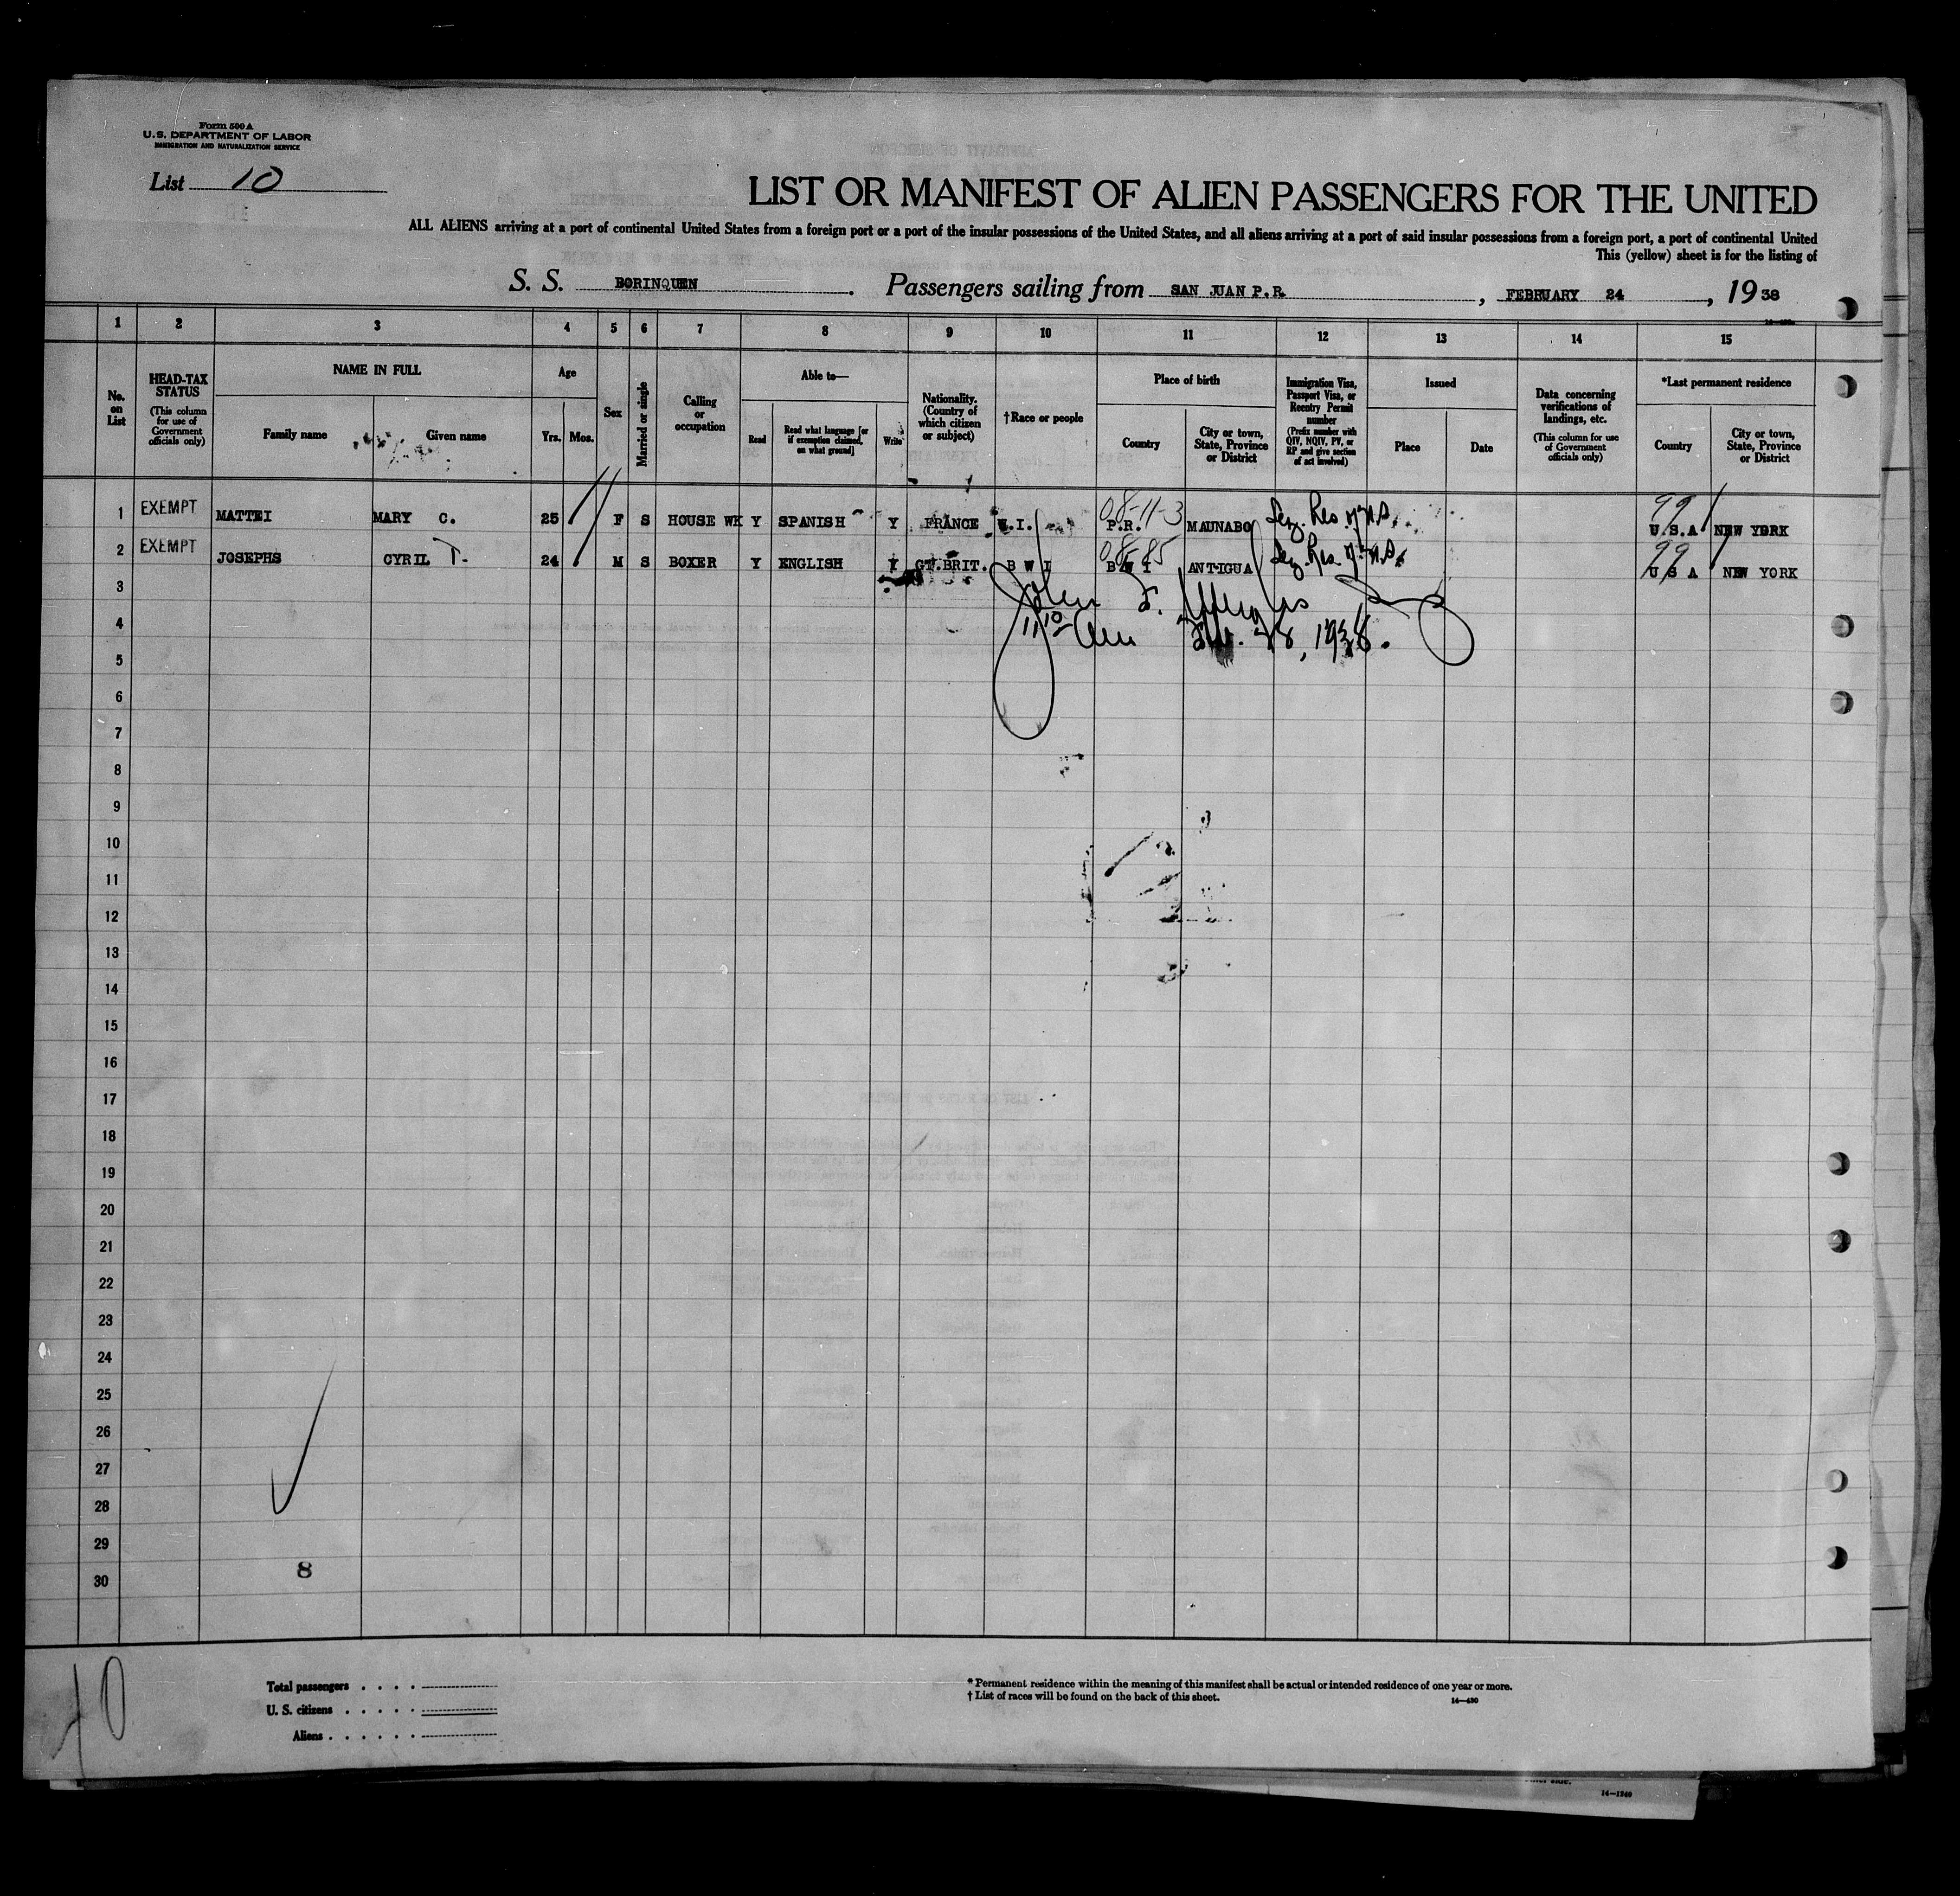 Form 500 A
U.S. DEPARTMENT OF LABOR
IMMIGRATION AND NATURALIZATION SERVICE
List 10
LIST OR MANIFEST OF ALIEN PASSENGERS FOR THE UNITED
ALL ALIENS arriving at a port of continental United States from a foreign port or a port of the insular possessions of the United States, and all aliens arriving at a port of said insular possessions from a foreign port, a port of continental United
This (yellow) sheet is for the listing of
S. S. BORINQUEN. Passengers sailing from SAN JUAN P.R., FEBRUARY 24, 1938
1 2 3 4 5 6 7 8 9 10 11 12 13 14 15
No. on List
HEAD-TAX STATUS
(This column for use of Government officials only)
NAME IN FULL
Family name
Given name
Age
Yrs.
Mos.
Sex
Married or single
Calling or occupation
Able to—
Read
Read what language [or if exemption claimed, on what ground]
Write
Nationality. (Country of which citizen or subject)
†Race or people
Place of birth
Country
City or town, State, Province or District
Immigration Visa, Passport Visa, or Reentry Permit number
(Prefix number with QIV, NQIV, PV, or RP and give section of act involved)
Issued
Place
Date
Data concerning verifications of landings, etc.
(This column for use of Government officials only)
*Last permanent residence
Country
City or town, State, Province or District
1 EXEMPT MATTEI MARY C. 25 F S HOUSE WK Y SPANISH Y FRANCE W.I. 08-11-3 P.R. MAUNABO 99 U.S.A NEW YORK
2 EXEMPT JOSEPHS CYRIL T. 24 M S BOXER Y ENGLISH Y GT.BRIT. B W I 08-85 B W I ANTIGUA 99 U S A NEW YORK
3
John
4
11 10 Feb. 28, 1938.
5
6
7
8
9
10
11
12
13
14
15
16
17
18
19
20
21
22
23
24
25
26
27
28
29
30
8
10
Total passengers
U. S. citizens
Aliens
* Permanent residence within the meaning of this manifest shall be actual or intended residence of one year or more.
† List of races will be found on the back of this sheet.
14—430
14—1240